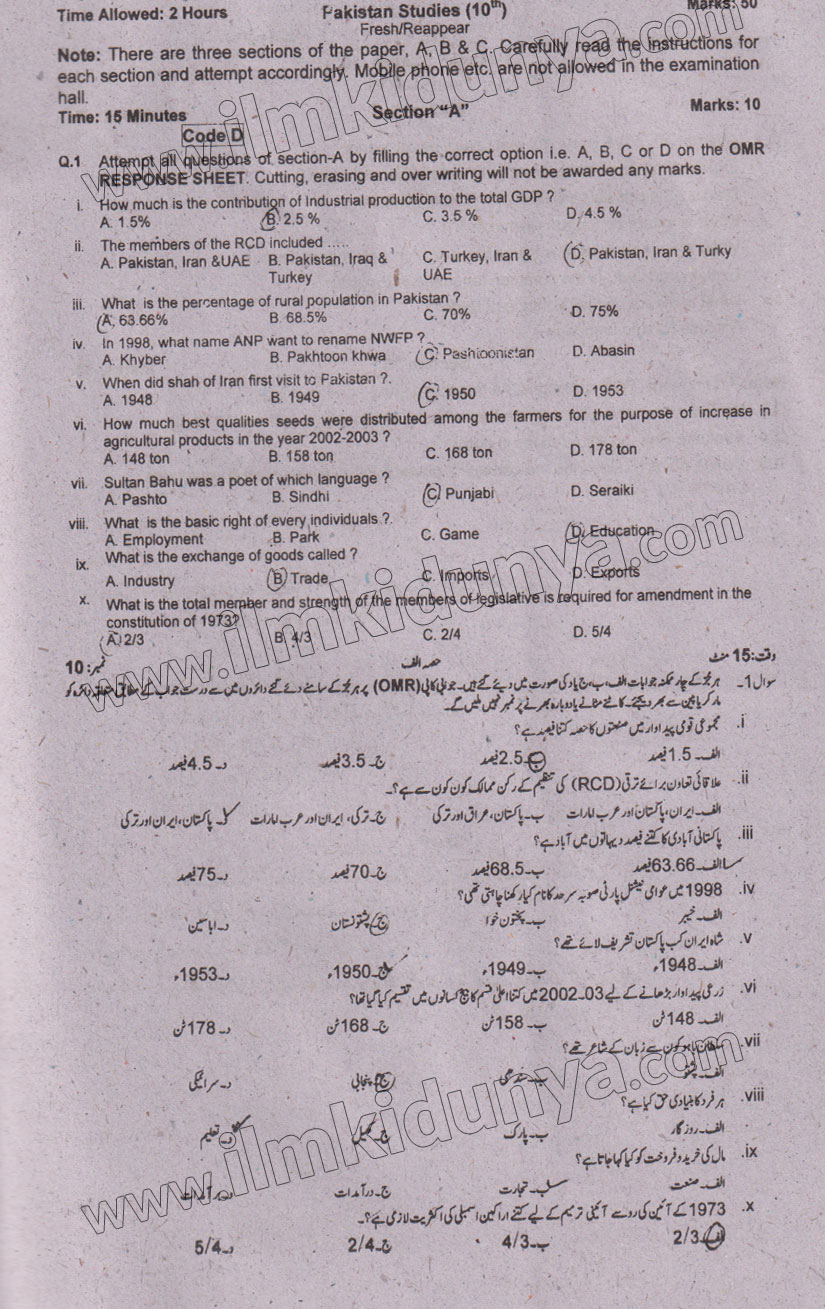 Time Allowed: 2 Hours Pakistan Studies (10th) Marks: 50
Fresh/Reappear
Note: There are three sections of the paper, A, B & C. Carefully read the instructions for
each section and attempt accordingly. Mobile phone etc. are not allowed in the examination
hall.
Time: 15 Minutes Section "A" Marks: 10
Code D
Q.1 Attempt all questions of section-A by filling the correct option i.e. A, B, C or D on the OMR
RESPONSE SHEET. Cutting, erasing and over writing will not be awarded any marks.
i. How much is the contribution of Industrial production to the total GDP ?
A. 1.5% B. 2.5 % C. 3.5 % D. 4.5 %
ii. The members of the RCD included .....
A. Pakistan, Iran &UAE B. Pakistan, Iraq & Turkey C. Turkey, Iran & UAE D. Pakistan, Iran & Turky
iii. What is the percentage of rural population in Pakistan ?
A. 63.66% B. 68.5% C. 70% D. 75%
iv. In 1998, what name ANP want to rename NWFP ?
A. Khyber B. Pakhtoon khwa C. Pashtoonistan D. Abasin
v. When did shah of Iran first visit to Pakistan ?.
A. 1948 B. 1949 C. 1950 D. 1953
vi. How much best qualities seeds were distributed among the farmers for the purpose of increase in
agricultural products in the year 2002-2003 ?
A. 148 ton B. 158 ton C. 168 ton D. 178 ton
vii. Sultan Bahu was a poet of which language ?
A. Pashto B. Sindhi C. Punjabi D. Seraiki
viii. What is the basic right of every individuals ?.
A. Employment B. Park C. Game D. Education
ix. What is the exchange of goods called ?
A. Industry B. Trade C. Imports D. Exports
x. What is the total member and strength of the members of legislative is required for amendment in the
constitution of 1973?
A. 2/3 B. 4/3 C. 2/4 D. 5/4
وقت:15 منٹ حصہ الف نمبر: 10
سوال 1۔ ہر جُز کے چار ممکنہ جوابات الف، ب، ج یا د کی صورت میں دیئے گئے ہیں۔ جوابی کاپی (OMR) پر ہر جُز کے سامنے دئے گئے دائروں میں سے درست جواب کے مطابق متعلقہ دائرہ کو
مارکر یا پین سے بھر دیجئے۔ کاٹنے مٹانے یا دوبارہ بھرنے پر نمبر نہیں ملیں گے۔
i. مجموعی قومی پیداوار میں صنعتوں کا حصہ کتنا فیصد ہے؟
الف۔ 1.5 فیصد ب۔ 2.5 فیصد ج۔ 3.5 فیصد د۔ 4.5 فیصد
ii. علاقائی تعاون برائے ترقی (RCD) کی تنظیم کے رکن ممالک کون کون سے ہے؟۔
الف۔ ایران، پاکستان اور عرب امارات ب۔ پاکستان، عراق اور ترکی ج۔ ترکی، ایران اور عرب امارات د۔ پاکستان، ایران اور ترکی
iii. پاکستانی آبادی کا کتنے فیصد دیہاتوں میں آباد ہے؟
الف۔ 63.66 فیصد ب۔ 68.5 فیصد ج۔ 70 فیصد د۔ 75 فیصد
iv. 1998 میں عوامی نیشنل پارٹی صوبہ سرحد کا نام کیا رکھنا چاہتی تھی؟
الف۔ خیبر ب۔ پختون خوا ج۔ پشتونستان د۔ اباسین
v. شاہ ایران کب پاکستان تشریف لائے تھے؟
الف۔ 1948ء ب۔ 1949ء ج۔ 1950ء د۔ 1953ء
vi. زرعی پیداوار بڑھانے کے لیے 03۔2002 میں کتنا اعلیٰ قسم کا بیج کسانوں میں تقسیم کیا گیا تھا؟
الف۔ 148 ٹن ب۔ 158 ٹن ج۔ 168 ٹن د۔ 178 ٹن
vii. سلطان باہو کون سے زبان کے شاعر تھے؟
الف۔ پشتو ب۔ سندھی ج۔ پنجابی د۔ سرائیکی
viii. ہر فرد کا بنیادی حق کیا ہے؟
الف۔ روزگار ب۔ پارک ج۔ کھیل د۔ تعلیم
ix. مال کی خرید و فروخت کو کیا کہا جاتا ہے؟
الف۔ صنعت ب۔ تجارت ج۔ درآمدات د۔ برآمدات
x. 1973 کے آئین کی رو سے آئینی ترمیم کے لیے کتنے اراکین اسمبلی کی اکثریت لازمی ہے؟۔
الف۔ 2/3 ب۔ 4/3 ج۔ 2/4 د۔ 5/4
www.ilmkidunya.com
www.ilmkidunya.com
www.ilmkidunya.com